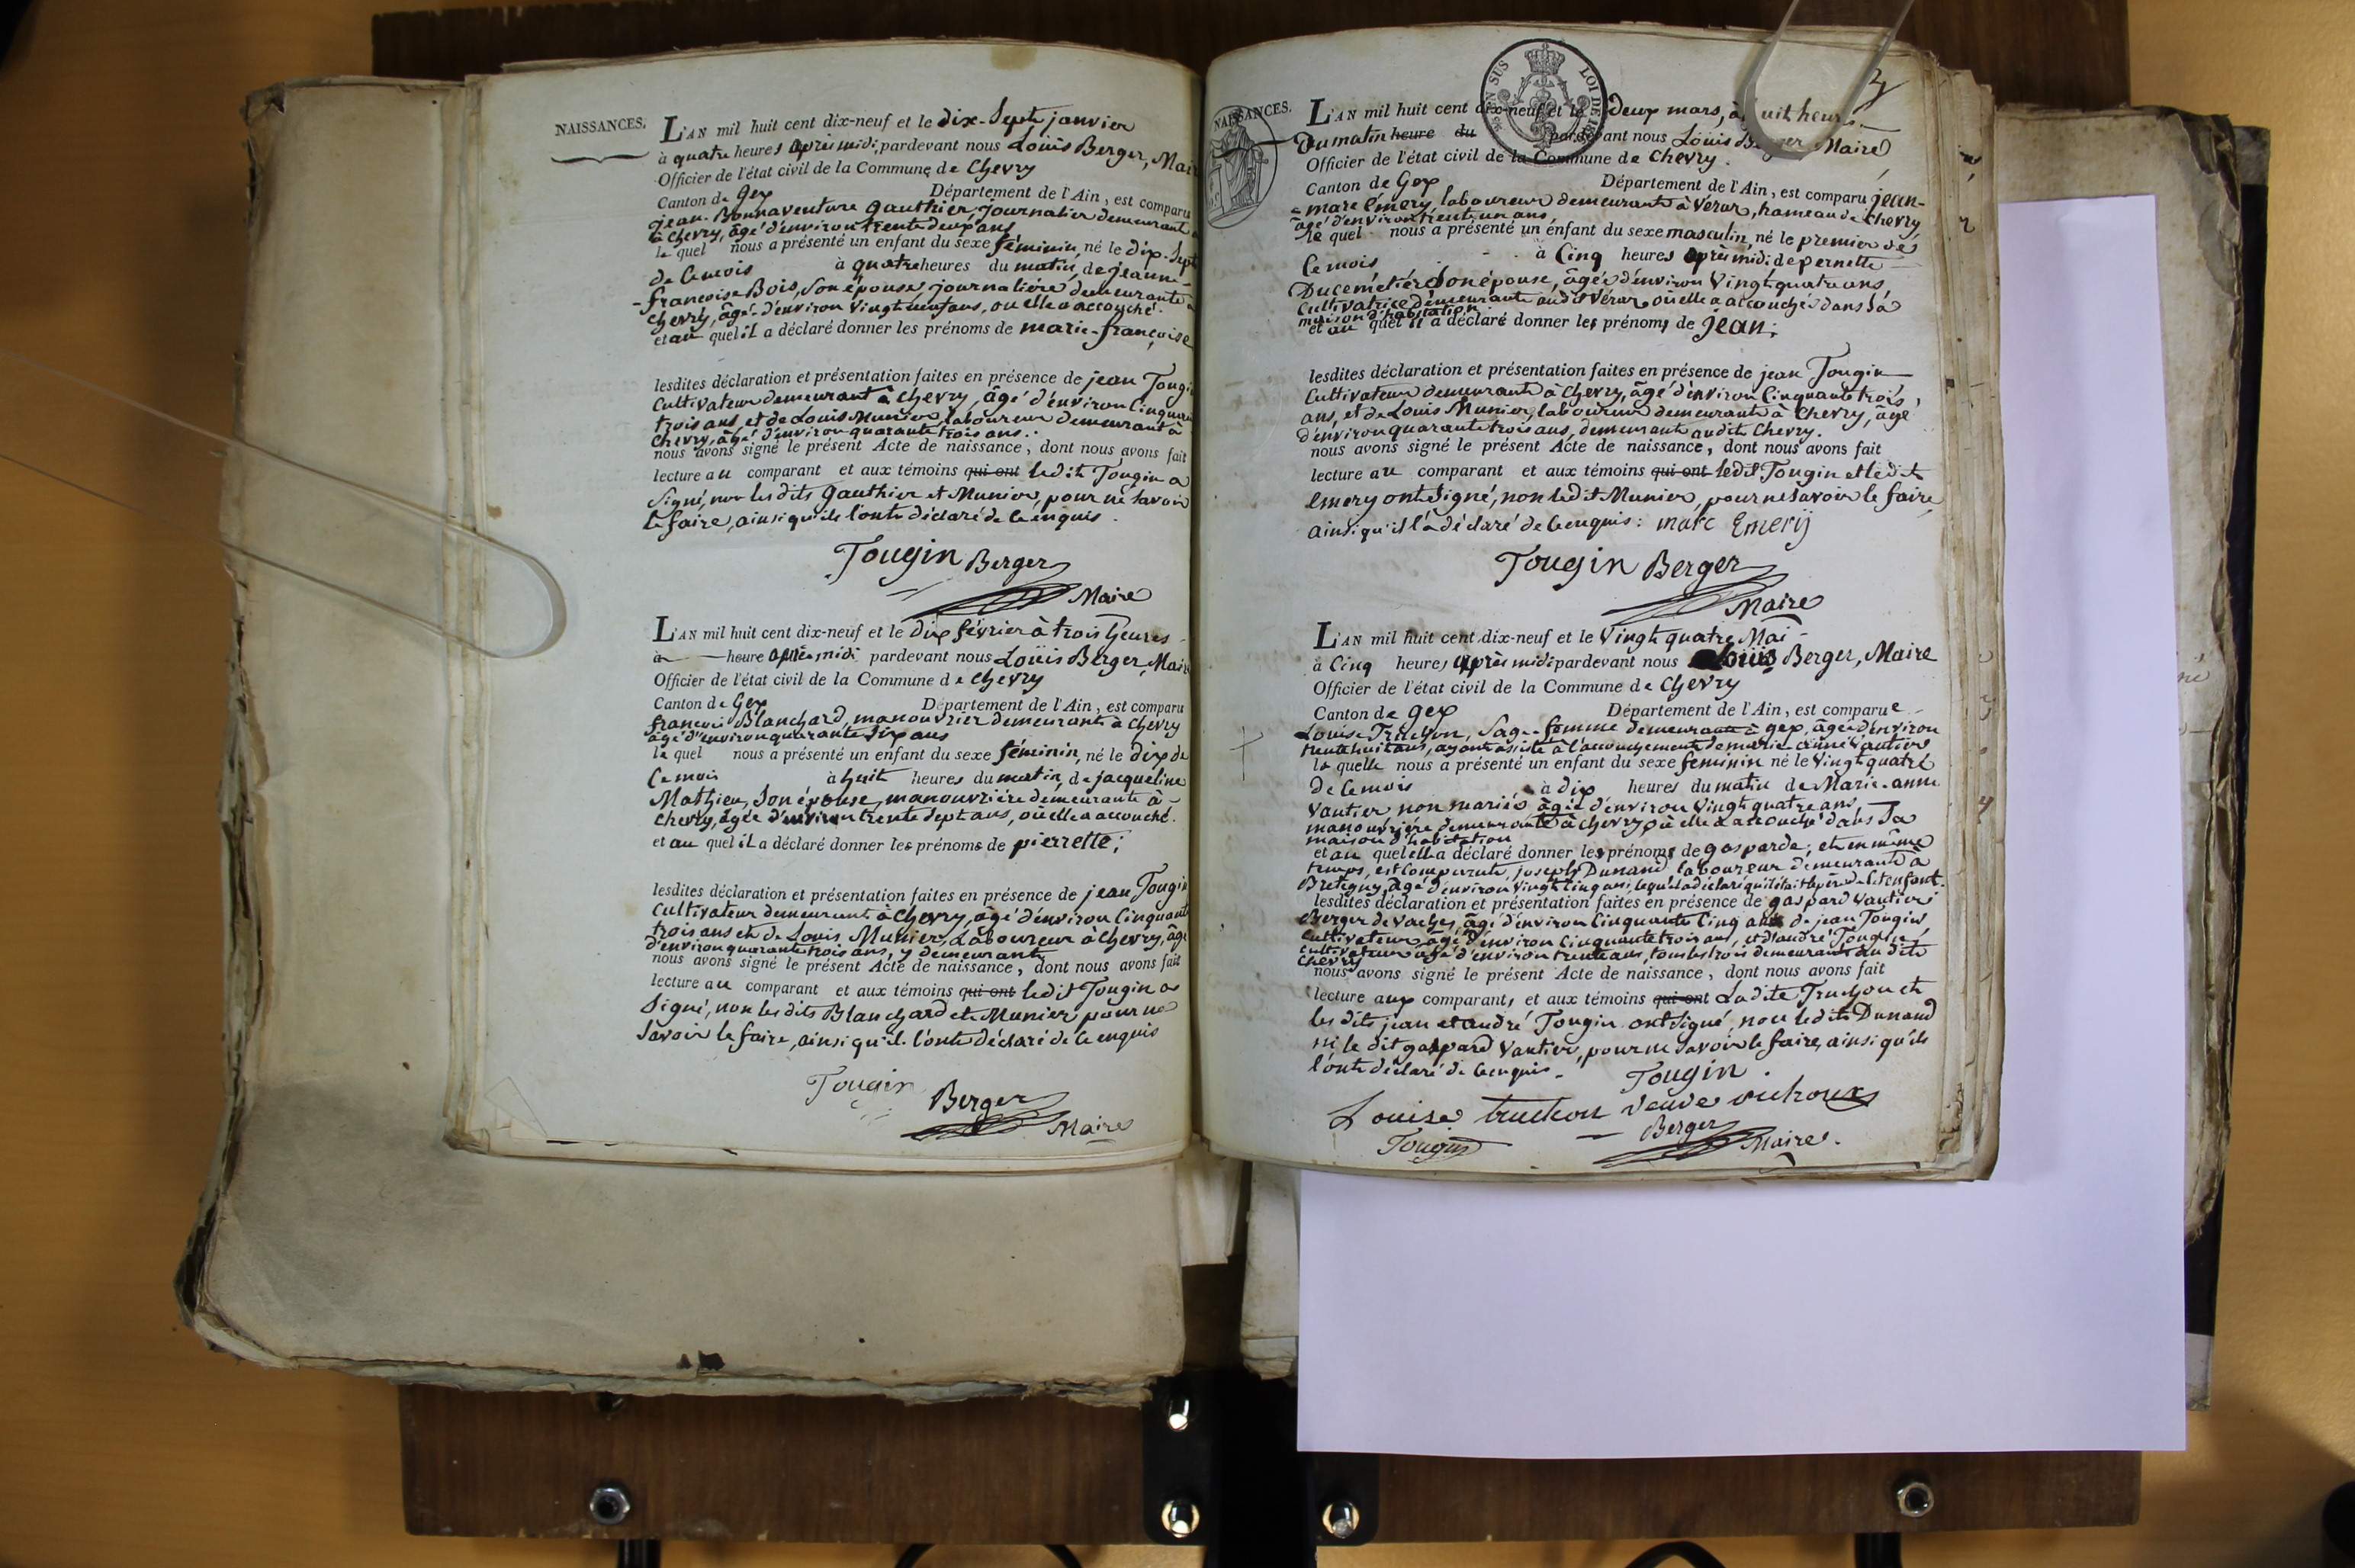 NAISSANCES.
L'AN mil huit cent dix-neuf et le dix-Sept janvier
à quatre heures après midi, pardevant nous Louis Berger, Mai
Officier de l'état civil de la Commune de Chevry
Canton de Gex Département de l'Ain, est comparu
jean-Bonnaventure Gauthier, journalier demeurant
à Chevry, âgé d'environ trente deux ans
le quel nous a présenté un enfant du sexe féminin, né le dix-Sept
de ce mois à quatre heures du matin, de jeanne-
françoise Bois, Son épouse journalière demeurante à
Chevry, âgé d'environ Vingt neuf ans, ou elle a accouché.
et au quel il a déclaré donner les prénoms de marie-françoise
lesdites déclaration et présentation faites en présence de jean Tougin
Cultivateur demeurant à Chevry, âgé d'environ Cinquante
trois ans, et de Louis Munier, laboureur demeurant à
Chevry, âgé d'environ quarante trois ans.
nous avons signé le présent Acte de naissance, dont nous avons fait
lecture au comparant et aux témoins qui ont ledit Tougin a
Signé, non les dits Gauthier et Munier, pour ne Savoir
le faire, ainsi qu'ils l'ont déclaré de ce enquis.
Tougin Berger
Maire
L'AN mil huit cent dix-neuf et le dix février à trois heures
à heure après midi pardevant nous Louis Berger, Maire
Officier de l'état civil de la Commune de Chevry
Canton de Gex Département de l'Ain, est comparu
françois Blanchard, manouvrier demeurant à Chevry
âgé d'environ quarante Six ans
le quel nous a présenté un enfant du sexe féminin, né le dix de
Ce mois à huit heures du matin, de jacqueline
Mathieu, Son épouse, manouvrière demeurante à
Chevry, âgée d'environ trente Sept ans, où elle a accouché.
et au quel il a déclaré donner les prénoms de pierrette;
lesdites déclaration et présentation faites en présence de jean Tougin
Cultivateur demeurant à Chevry, âgé d'environ Cinquante
trois ans et de Louis Munier, Laboureur à Chevry, âgé
d'environ quarante trois ans, y demeurant
nous avons signé le présent Acte de naissance, dont nous avons fait
lecture au comparant et aux témoins qui ont ledit Tougin a
Signé, non les dits Blanchard et Munier pour ne
Savoir le faire, ainsi qu'il l'ont déclaré de ce enquis
Tougin Berger
Maire
3
NAISSANCES.
L'AN mil huit cent dix-neuf et le deux mars, à huit heures
du matin heure du pardevant nous Louis Berger Maire
Officier de l'état civil de la Commune de Chevry.
Canton de Gex Département de l'Ain, est comparu jean-
marc Emery, laboureur demeurant à Véraz, hameau de Chevry,
âgé d'environ trente un ans,
le quel nous a présenté un enfant du sexe masculin, né le premier de
Ce mois à Cinq heures après midi de pernette
Ducemetière Son épouse, âgée d'environ Vingt quatre ans,
Cultivatrice demeurante audit Véraz, où elle a accouché dans Sa
maison d'habitation
et au quel il a déclaré donner les prénoms de jean;
lesdites déclaration et présentation faites en présence de jean Tougin
Cultivateur demeurant à Chevry, âgé d'environ Cinquante trois
ans, et de Louis Munier, laboureur demeurant à Chevry, âgé
d'environ quarante trois ans, demeurant audit Chevry.
nous avons signé le présent Acte de naissance, dont nous avons fait
lecture au comparant et aux témoins qui ont ledit Tougin et ledit
Emery ont Signé, non ledit Munier, pour ne Savoir le faire,
ainsi qu'il l'a déclaré de ce enquis: marc Emerÿ
Tougin Berger
Maire
L'AN mil huit cent dix-neuf et le Vingt quatre Mai
à Cinq heures après midi pardevant nous Louis Berger, Maire
Officier de l'état civil de la Commune de Chevry
Canton de gex Département de l'Ain, est comparue
Louise Truchon, Sage-femme demeurante à gex, âgée d'environ
trente huit ans, ayant assisté à l'accouchement de marie-anne Vautier
la quelle nous a présenté un enfant du sexe féminin né le Vingt quatre
de Ce mois à dix heures du matin de Marie-anne
Vautier non mariée âgée d'environ Vingt quatre ans,
manouvrière demeurante à Chevry où elle a accouché dans Sa
maison d'habitation
et au quel elle a déclaré donner les prénoms de gasparde; et en même
temps, est Comparu, joseph Dunand laboureur demeurant à
Bretigny, âgé d'environ Vingt Cinq ans, lequel a déclaré qu'il était le père de cet enfant.
lesdites déclaration et présentation faites en présence de gaspard Vautier
Berger de Vaches, âgé d'environ Cinquante Cinq ans de jean Tougin
Cultivateur, âgé d'environ Cinquante trois ans, et d'andré Tougin,
Cultivateur âgé d'environ trente ans, tous les trois demeurant au dit
Chevry
nous avons signé le présent Acte de naissance, dont nous avons fait
lecture aux comparants et aux témoins qui ont Ladite Truchon et
les dits jean et andré Tougin ont Signé, non ledit Dunand
ni le dit gaspard Vautier, pour ne Savoir le faire, ainsi qu'ils
l'ont déclaré de ce enquis. Tougin.
Louise truchon veuve
Tougin Berger
Maire.